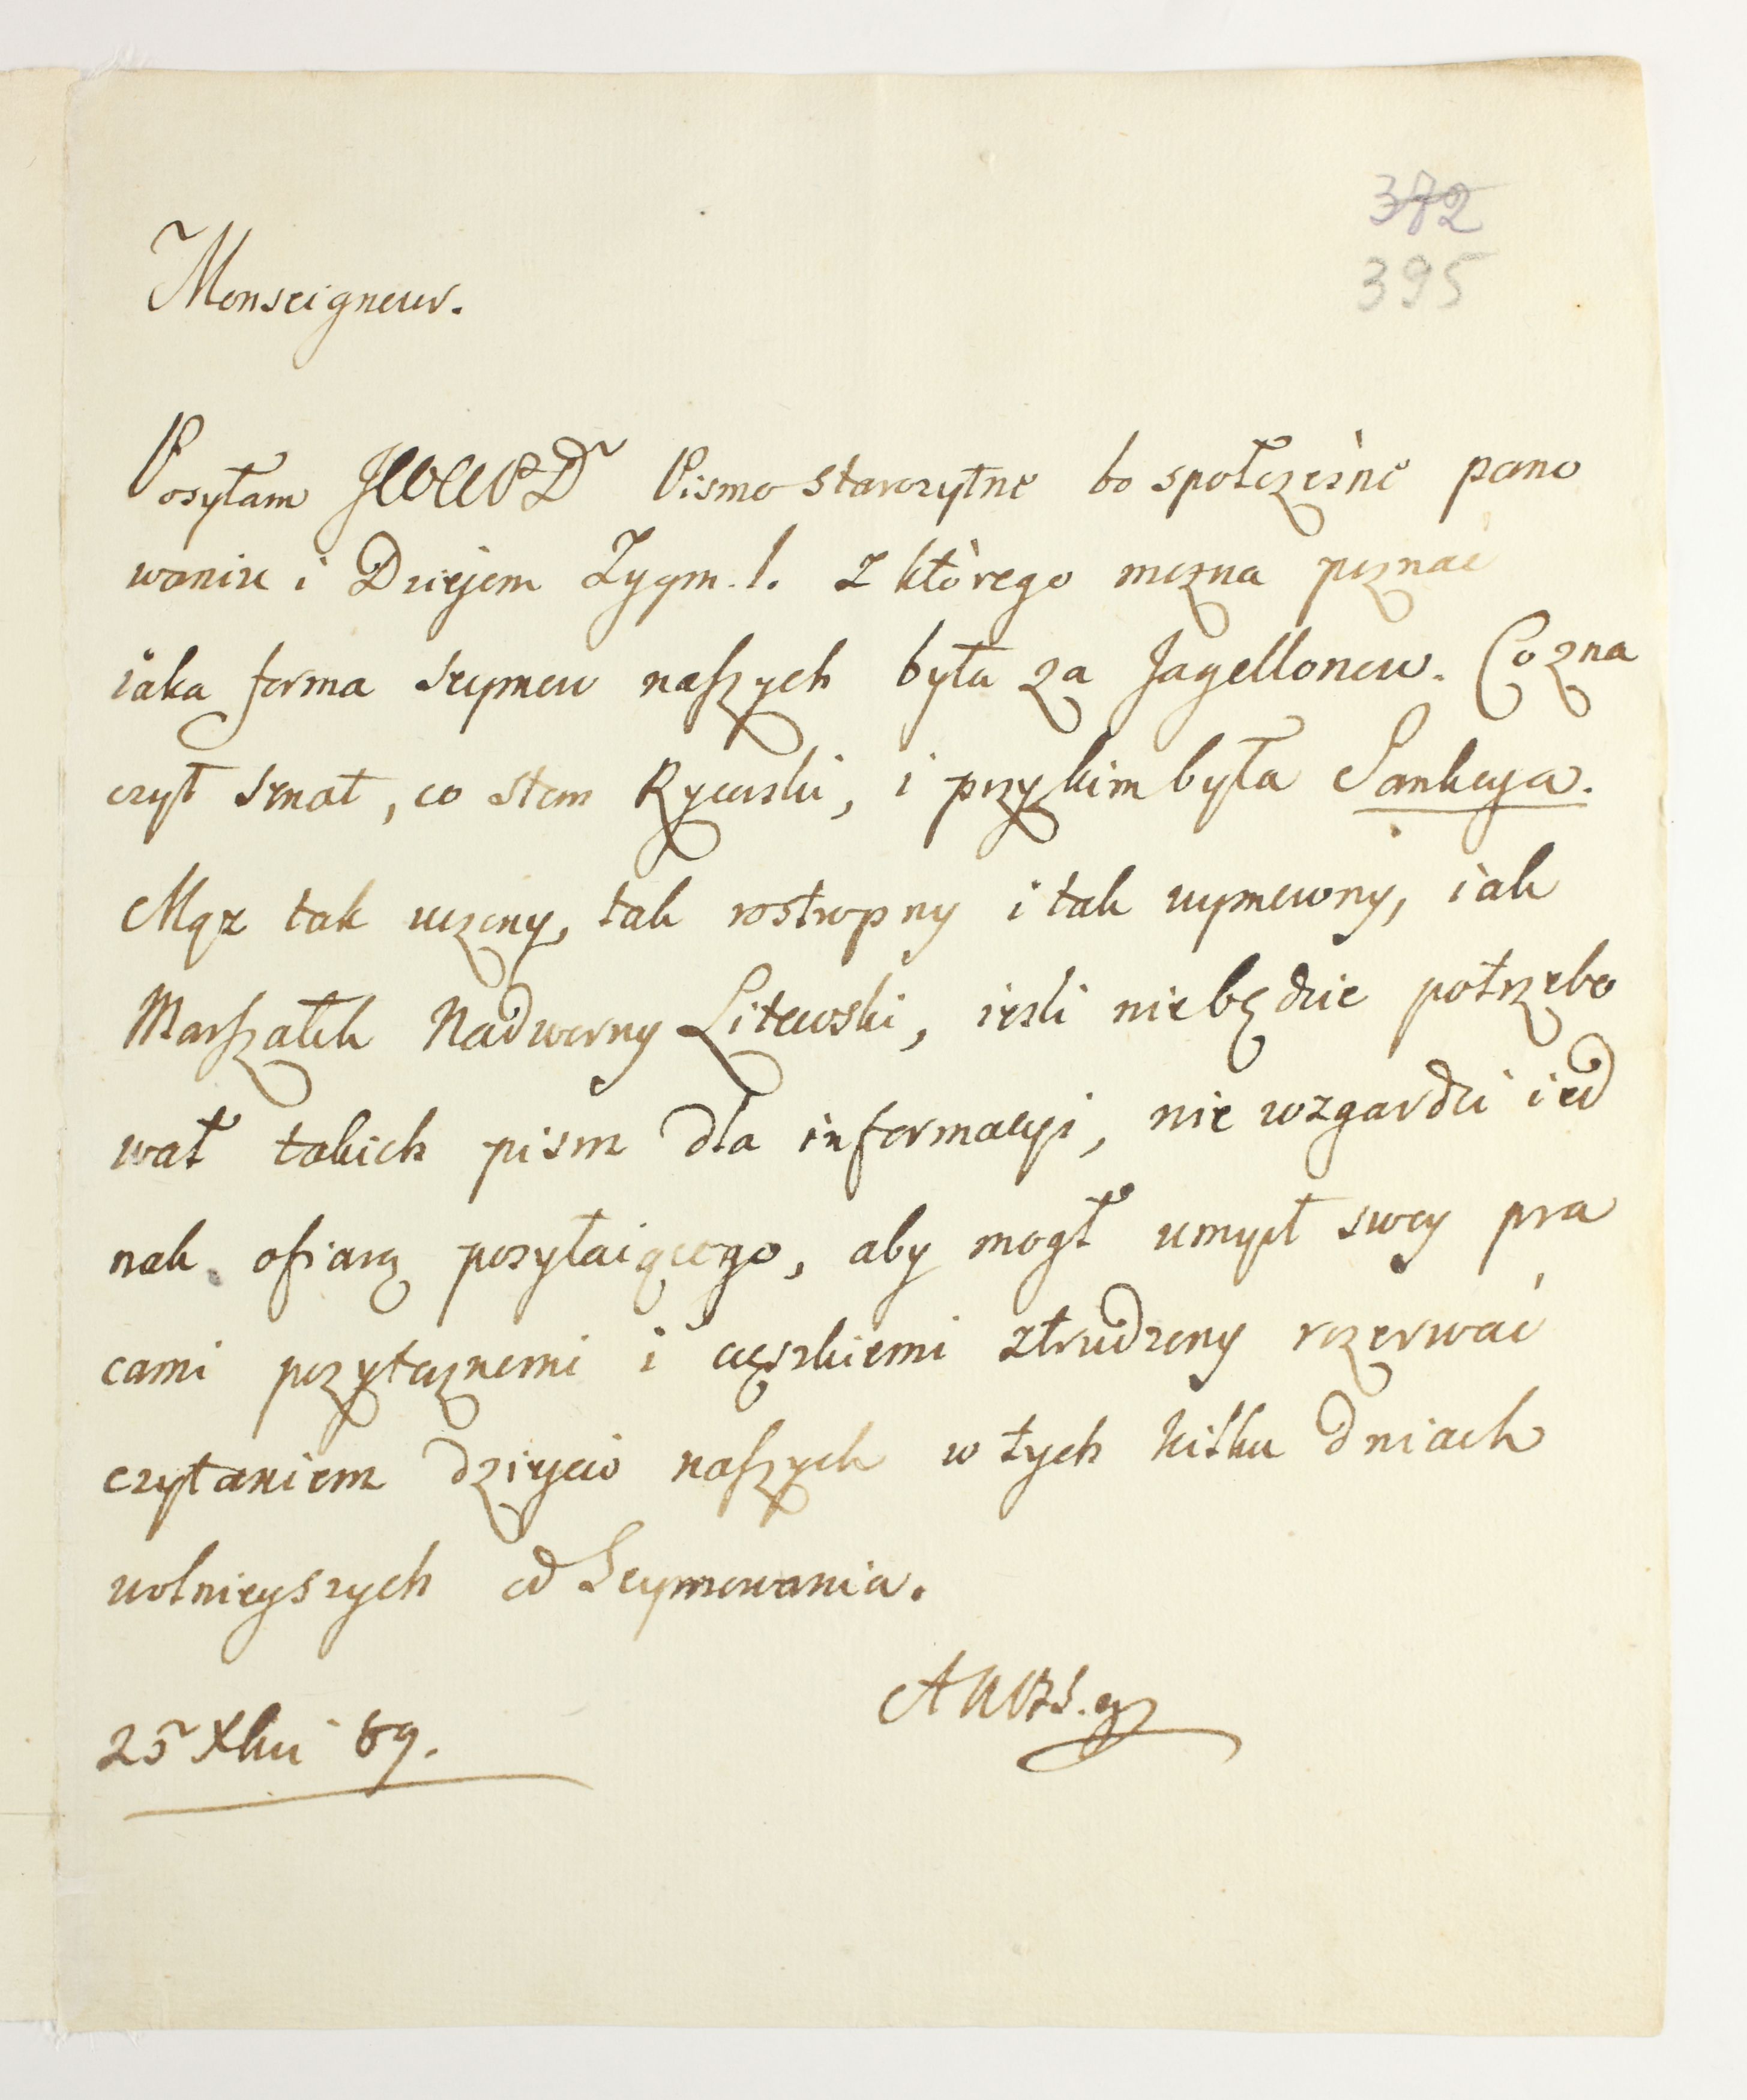 372
395
Monseigneur.
Posyłam JWWPD Pismo starożytne bo społcześne pano
waniu i Dziejom Zygm. I. z którego można poznać
iaka forma seymow naszych była za Jagellonow. Co zna
czył senat, co stan Rycerski, i przy kim była Sankcya.
Mąz tak uczony, tak rostropny i tak wymowny, iak
Marszałek Nadworny Litewski, ieśli niebędzie potrzebo
wał takich pism dla informacyi, nie wzgardzi ied
nak ofiarą posyłaiącego, aby mogł umysł swoy pra
cami pozytecznemi i cięszkiemi ztrudzony rozerwać
czytaniem dzieiow naszych w tych kilku dniach
wolnieyszych od Seymowania.
25 Xbri 89.